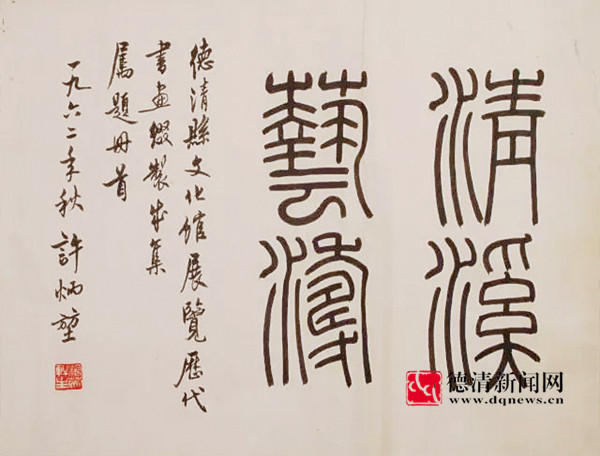 清溪
藝
德清縣文化館展覽歷代
書畫綴製成集
屬題册首
一九六二年秋 許炳堃
德清新闻网
www.dqnews.cn